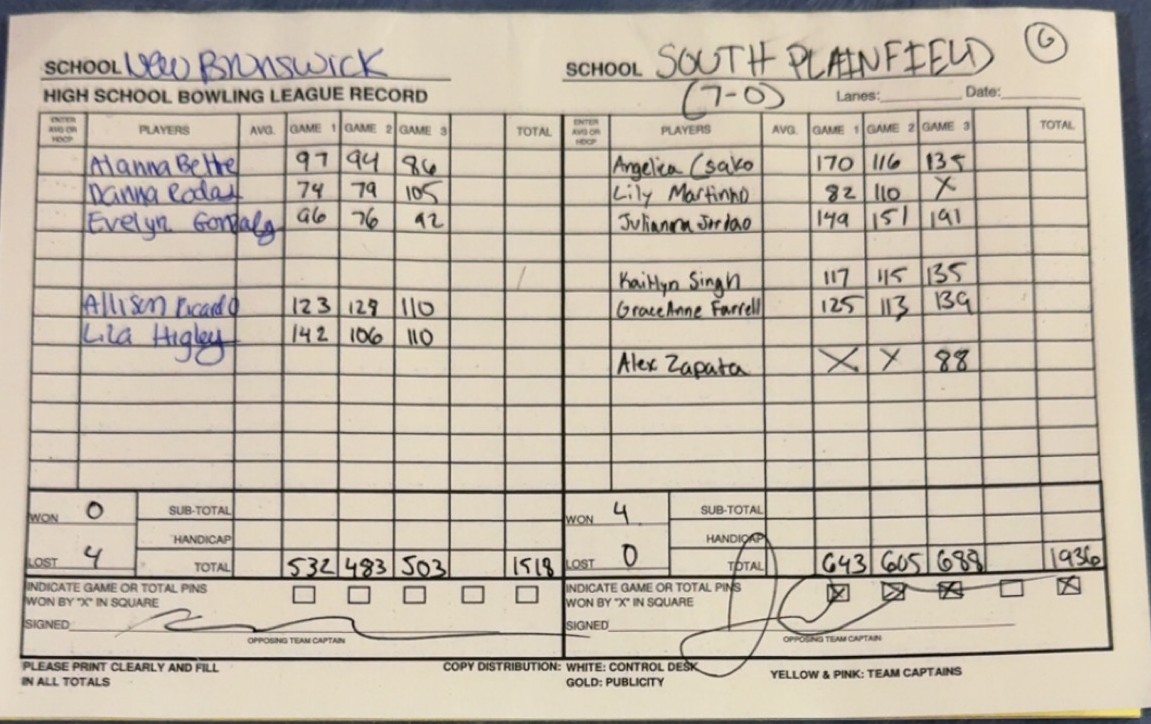 SCHOOL New Brunswick
SCHOOL SOUTH PLAINFIELD G
(7-0)
HIGH SCHOOL BOWLING LEAGUE RECORD
Lanes: Date:
ENTER AVG OR HDCP PLAYERS AVG. GAME 1 GAME 2 GAME 3 TOTAL
ENTER AVG OR HDCP PLAYERS AVG. GAME 1 GAME 2 GAME 3 TOTAL
Alanna 97 94 86
Angelica Csako 170 116 135
Danna Rodas 74 79 105
Lily Martinho 82 110 X
Evelyn 96 76 92
Julianna Jordao 149 151 191
Kaitlyn Singh 117 115 135
Allison Picardo 123 128 110
GraceAnne Farrell 125 113 139
Lila Higley 142 106 110
Alex Zapata X X 88
WON 0 SUB-TOTAL
WON 4 SUB-TOTAL
HANDICAP
HANDICAP
LOST 4 TOTAL 532 483 503 1518
LOST 0 TOTAL 643 605 688 1936
INDICATE GAME OR TOTAL PINS
WON BY "X" IN SQUARE
INDICATE GAME OR TOTAL PINS
WON BY "X" IN SQUARE X X X X
SIGNED
OPPOSING TEAM CAPTAIN
SIGNED
OPPOSING TEAM CAPTAIN
PLEASE PRINT CLEARLY AND FILL
IN ALL TOTALS
COPY DISTRIBUTION: WHITE: CONTROL DESK
GOLD: PUBLICITY
YELLOW & PINK: TEAM CAPTAINS